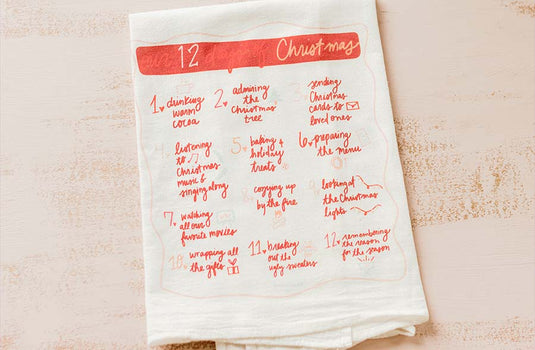 12 Christmas
1. drinking
warm
cocoa
2. admiring
the
Christmas
tree
3. sending
Christmas
cards to
loved ones
4. listening
to
Christmas
music &
singing along
5. baking
holiday
treats
6. preparing
the menu
7. watching
all our
favorite movies
8. cozying up
by the fire
9. looking at
the Christmas
lights
10. wrapping all
the gifts
11. breaking
out the
ugly sweaters
12. remembering
the reason
for the season